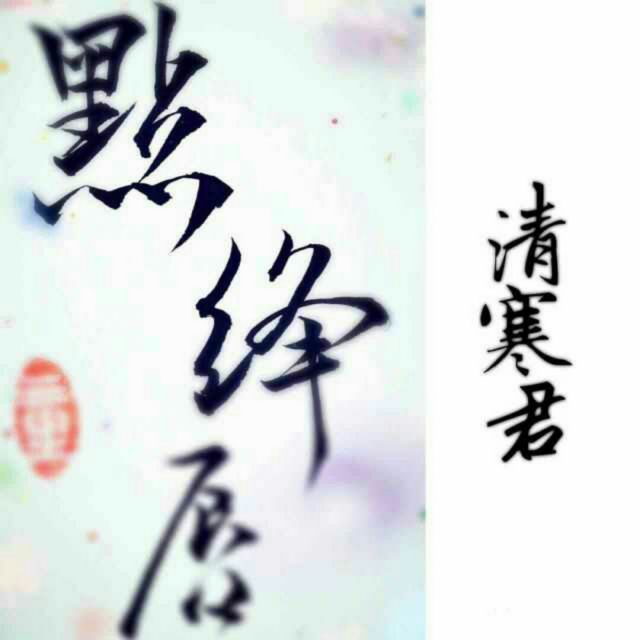 點絳唇
清寒君